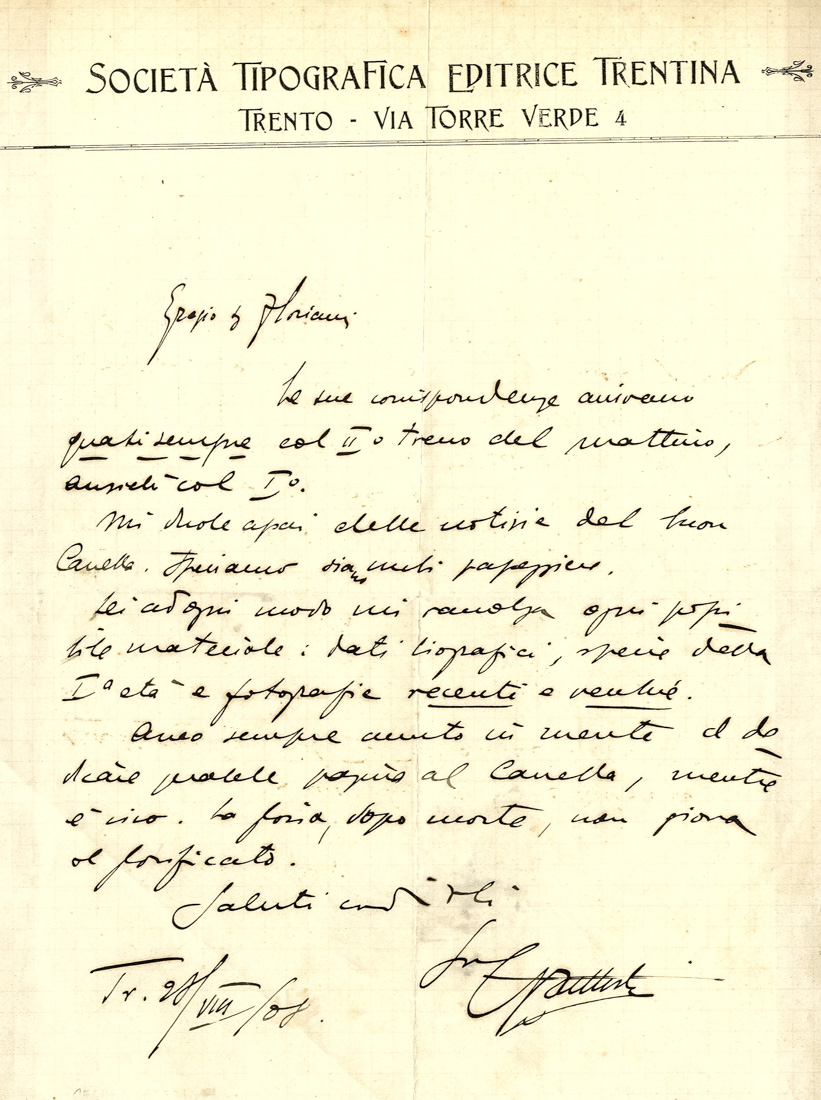 SOCIETÀ TIPOGRAFICA EDITRICE TRENTINA
TRENTO - VIA TORRE VERDE 4
Floriani
Le sue corrispondenze arrivano
quasi sempre col II° treno del mattino,
anziché col I°.
Mi duole assai delle notizie del buon
Canella. Speriamo siano mali passeggieri.
Lei ad ogni modo mi raccolga ogni possi
bile materiale: dati biografici, specie della
Iª età e fotografie recenti e vecchie.
Avevo sempre avuto in mente di de
dicare qualche pagina al Canella, mentre
è vivo. La gloria, dopo morte, non giova
al glorificato.
Saluti cordiali
Battisti
Tr. 28/VIII/08.